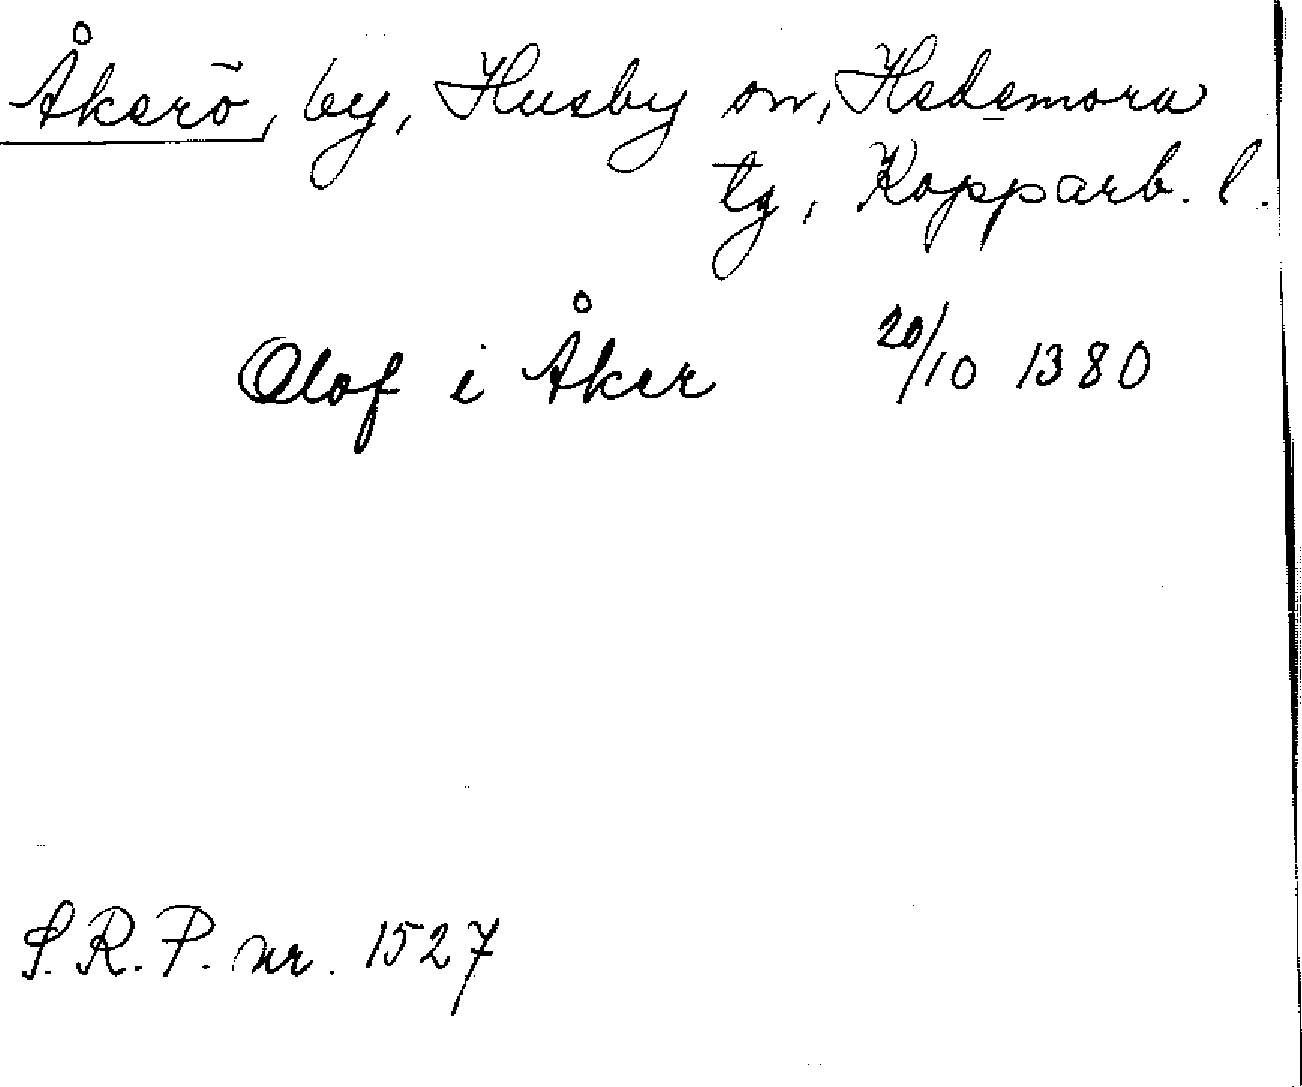 Åkerö, by, Husby sn, Hedemora
tg, Kopparb. l.
Olof i Åker 20/10 1380
S.R.P. nr. 1527